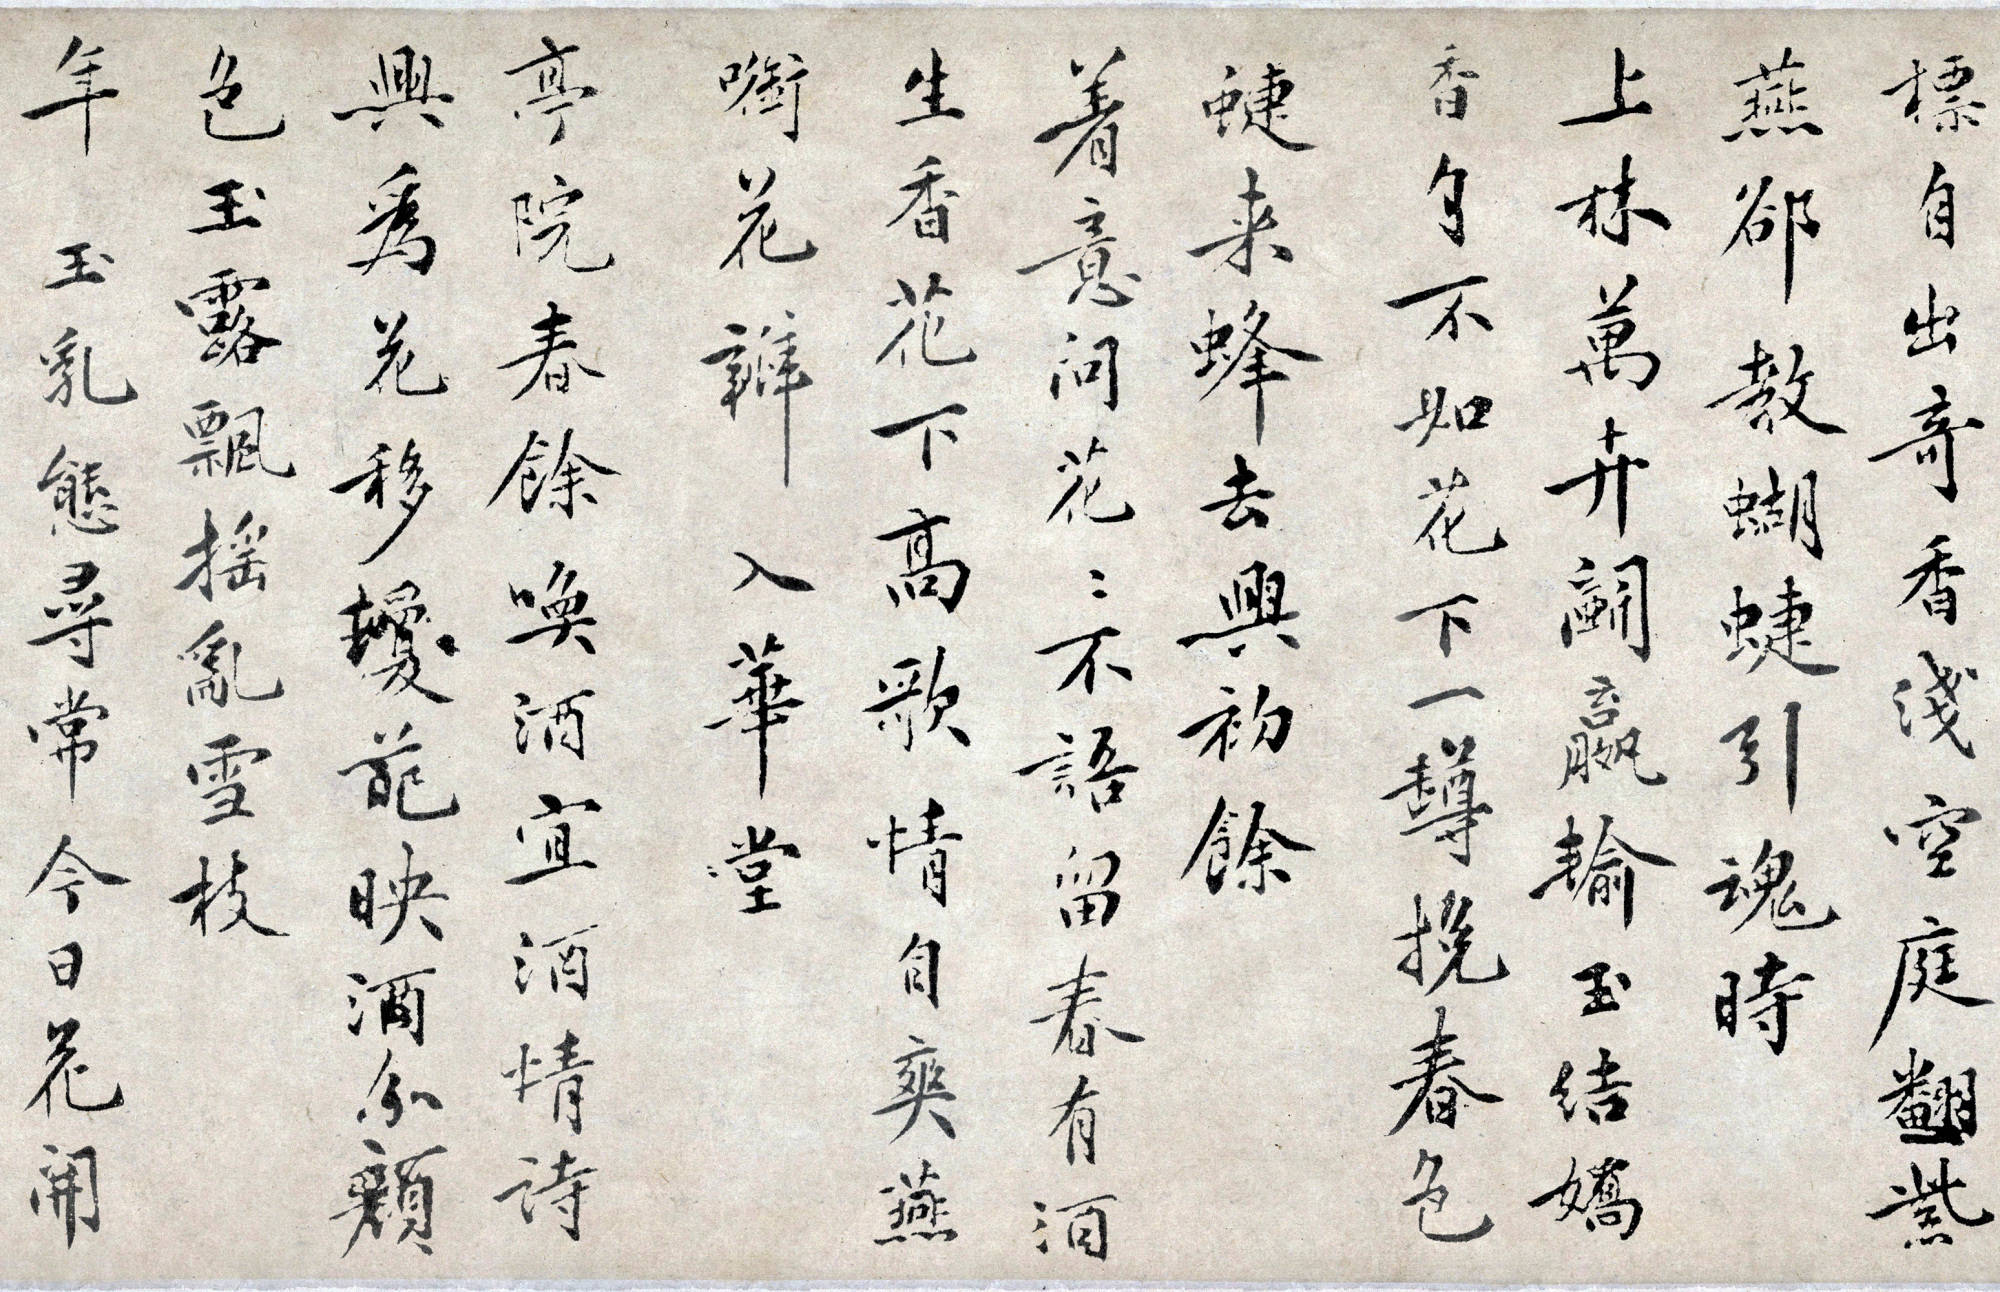 標自出奇香淺空庭翻紫
燕郤教蝴蜨引魂時
上林萬卉鬭羸輸玉結嬌
香句不如花下一罇挽春色
蜨来蜂去興初餘
着意問花〻不語留春有酒
生香花下高歌情自爽燕
啣花瓣入華堂
亭院春餘喚酒宜酒情詩
興爲花移攙葩映酒分顏
色玉露飄摇亂雪枝
年玉乳態尋常今日花開